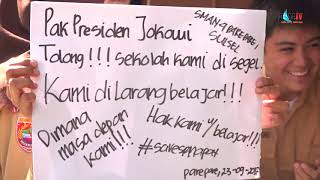 Pak Presiden Jokowi
SMAN 7 PAREPARE /
SULSEL
Tolong!!! sekolah kami di segel.
Kami di Larang belajar!!!
Dimana
masa depan
kami!!!
Hak kami u/ belajar!!!
parepare, 23-09-